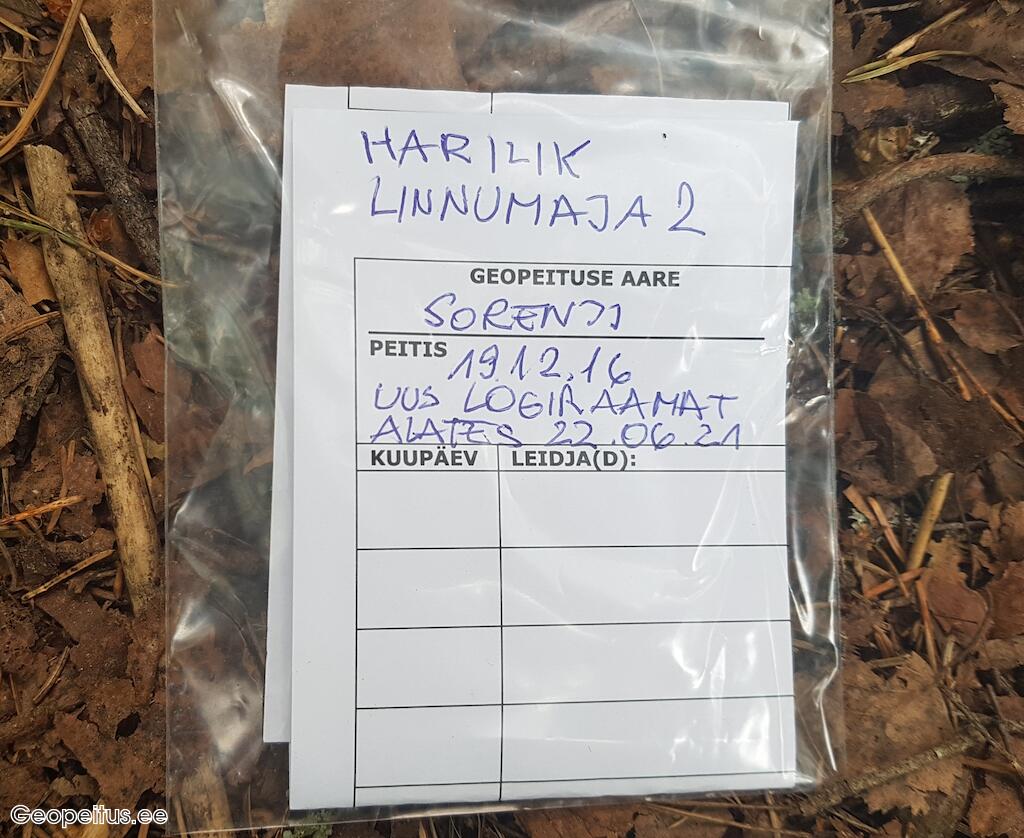 HARILIK
LINNUMAJA 2
GEOPEITUSE AARE
SORENJJ
PEITIS 19.12.16
UUS LOGIRAAMAT
ALATES 22.06.21
KUUPÄEV LEIDJA(D):
Geopeitus.ee